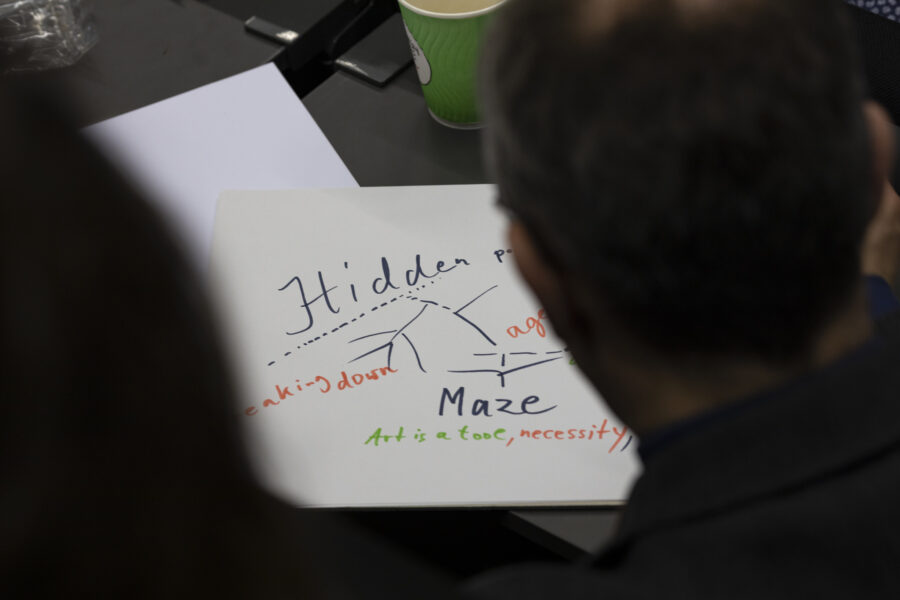 Hidden
eaking down
Maze
Art is a tool, necessity,